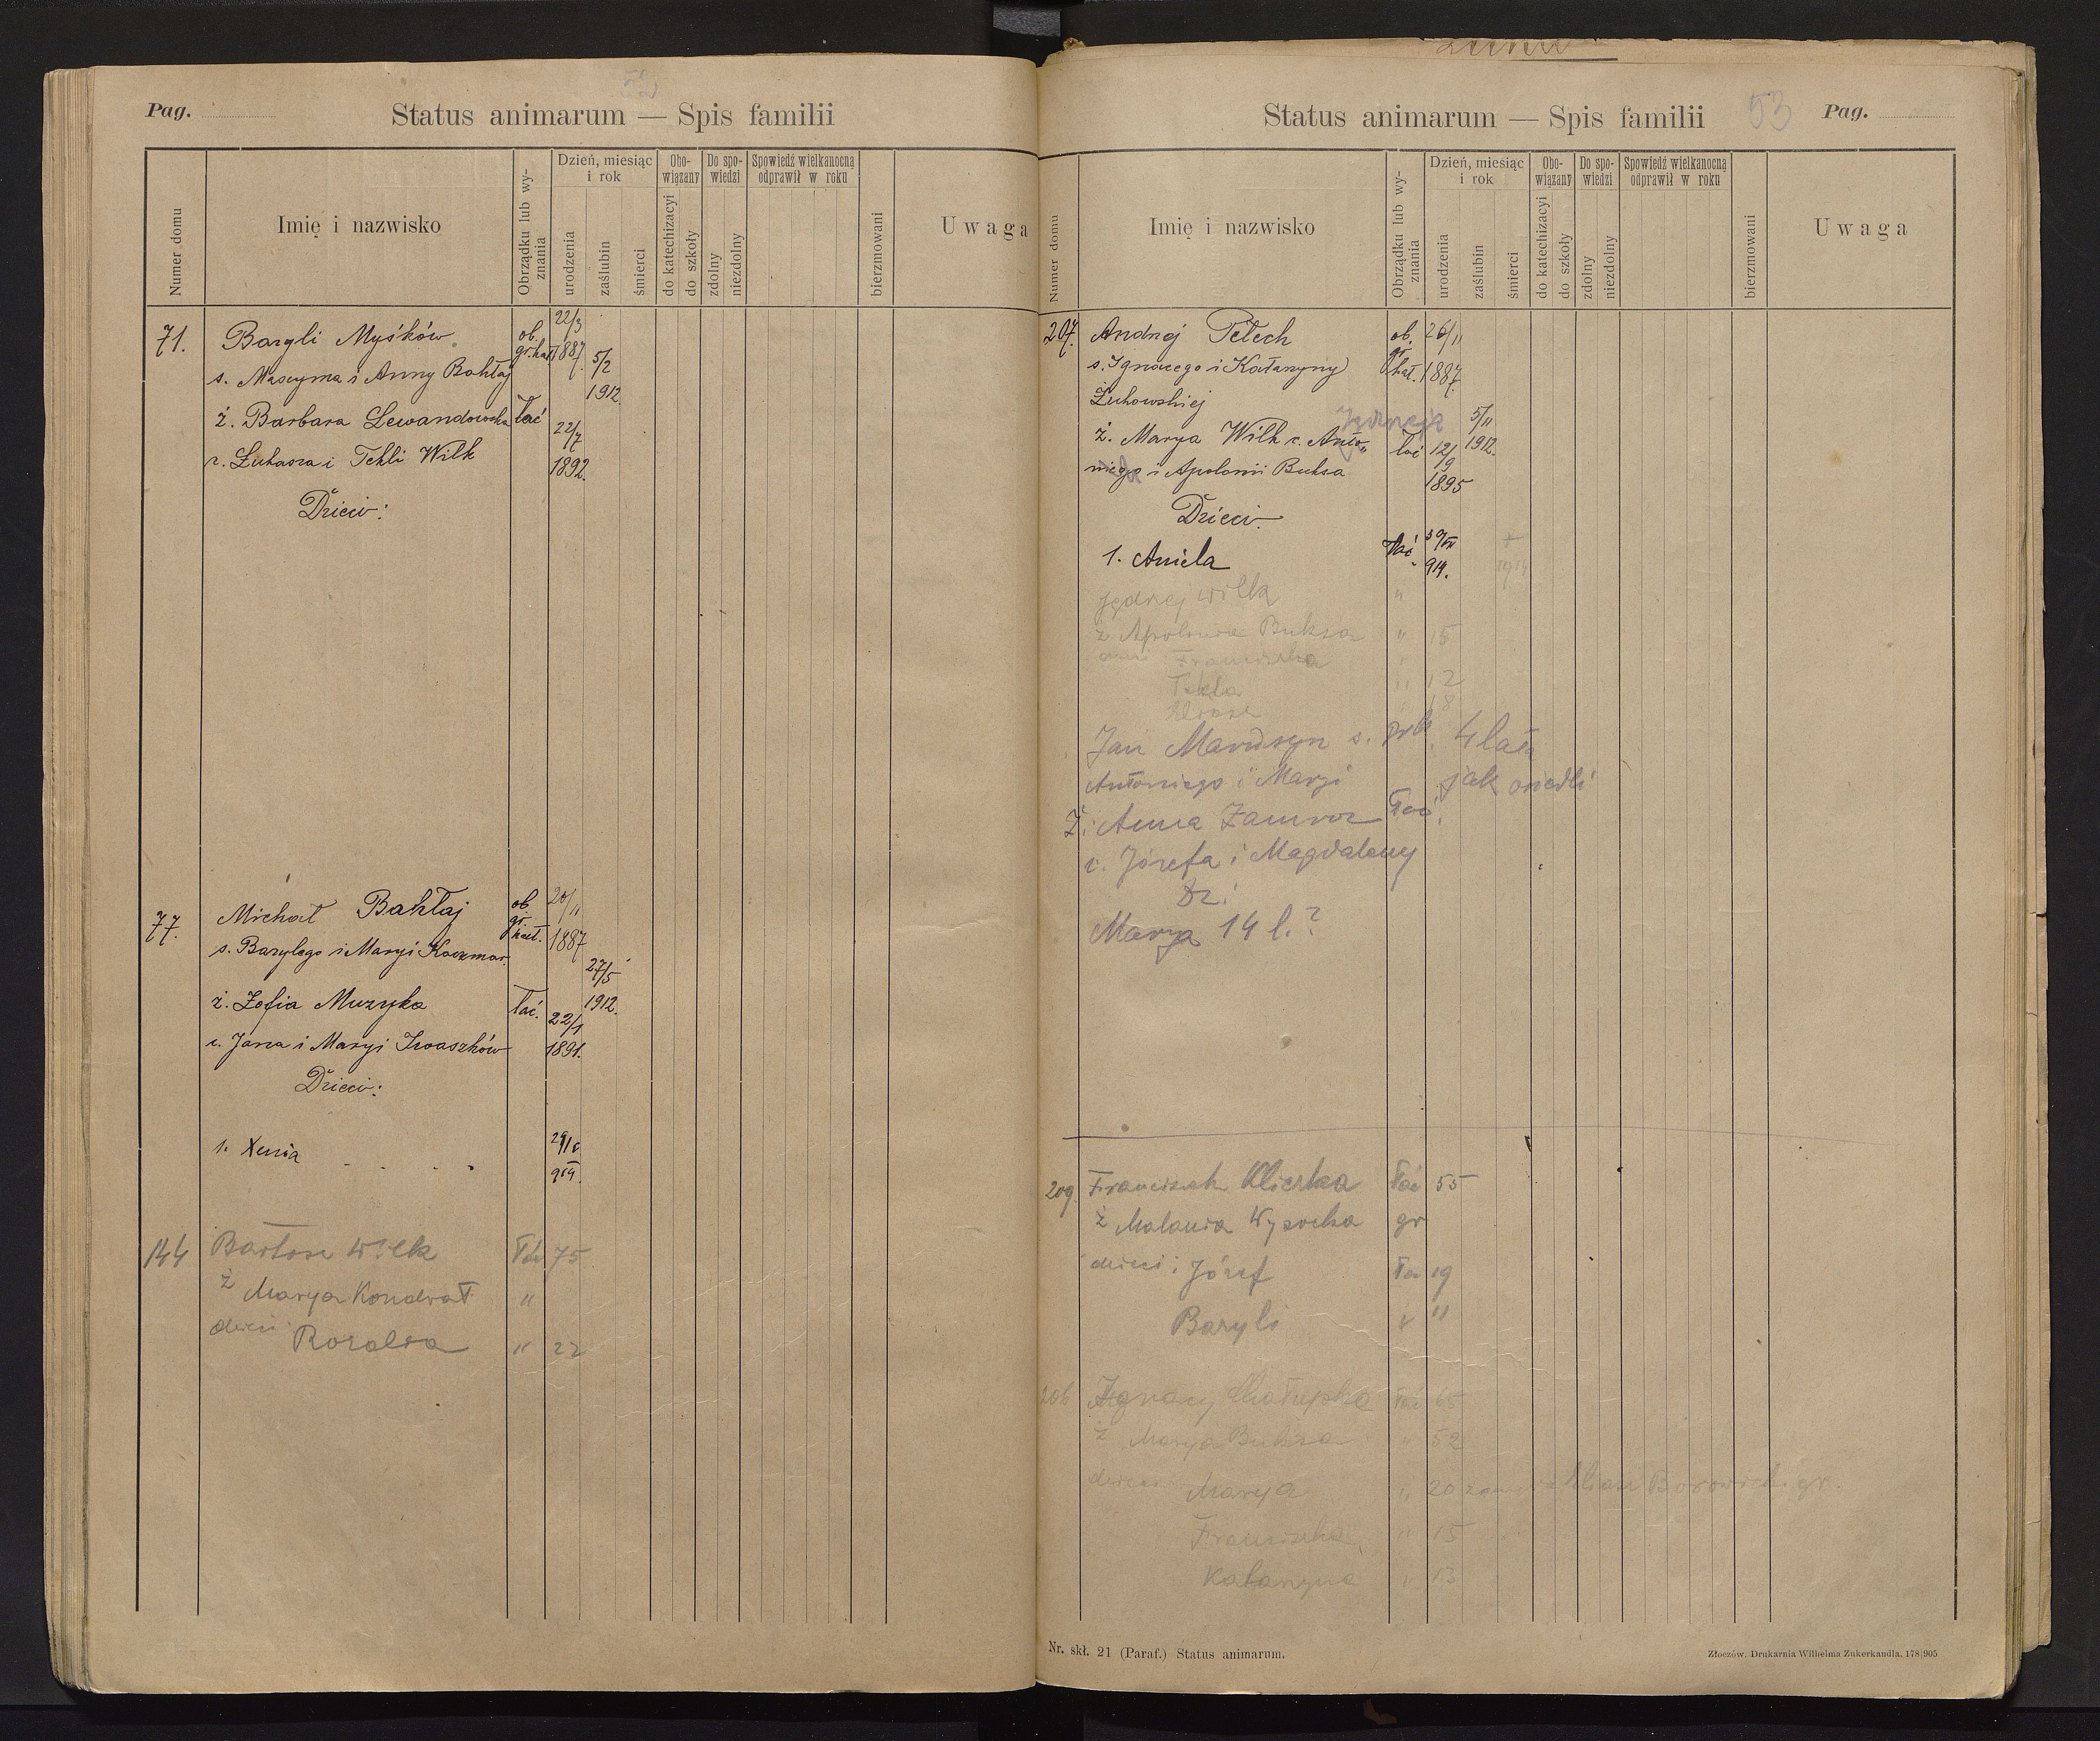 Pag.
52
Status animarum — Spis familii
Numer domu
Imię i nazwisko
Obrządku lub wy-
znania
Dzień, miesiąc
i rok
urodzenia
zaślubin
śmierci
Obo-
wiązany
do katechizacyi
do szkoły
Do spo-
wiedzi
zdolny
niezdolny
Spowiedź wielkanocną
odprawił w roku
bierzmowani
Uwaga
71. Bazyli Myśków ob. gr. kat. 22/3 1887.
s. Maxyma i Anny Bahłaj 5/2 1912.
ż. Barbara Lewandowska łać 22/7
c. Łukasza i Tekli Wilk 1892.
Dzieci:
77. Michał Bahłaj ob. gr. kat. 20/11 1887
s. Bazylego i Maryi Kaczmar. 27/5
ż. Zofia Muzyka łać. 22/1 1912.
c. Jana i Maryi Iwaszków 1891.
Dzieci:
1. Xenia 914.
144 Bartosz Wilk łać 75
ż Marya Kondrat "
dzieci Rozalia " 22
Status animarum — Spis familii
53
Pag.
Numer domu
Imię i nazwisko
Obrządku lub wy-
znania
Dzień, miesiąc
i rok
urodzenia
zaślubin
śmierci
Obo-
wiązany
do katechizacyi
do szkoły
Do spo-
wiedzi
zdolny
niezdolny
Spowiedź wielkanocną
odprawił w roku
bierzmowani
Uwaga
207. Andrzej Petech ob. gr. kat. 26/11
s. Ignacego i Katarzyny 1887.
Żukowskiej
Jędrzeja
ż. Marya Wilk c. Anto„ łać 12/9 5/11 1912.
niego i Apolonii Buksa 1895
Dzieci.
1. Aniela łać 30/VII 914. + 1914
Jędrzej Wilk "
ż Apolonia Buksa " 15
dzieci Franciszka
Tekla " 12
18
Jan Marusyn s. 4 lata
Antoniego i Maryi jak osiedli
Ż. Anna Zamroz łać.
c. Józefa i Magdaleny
Dz.
Marya 14 l.?
209. Franciszek Kliszka łać 55
ż Malania Wysocka gr
dzieci: Józef łać 19
Bazyli " "
206 Ignacy Chałupka łać 65
ż Marya Buksa " 52
dzieci Marya " 20 Borowicki gr.
Franciszka " 15
Katarzyna " 13
Nr. skł. 21 (Paraf.) Status animarum.
Złoczów. Drukarnia Wilhelma Zukerkandla. 178|905